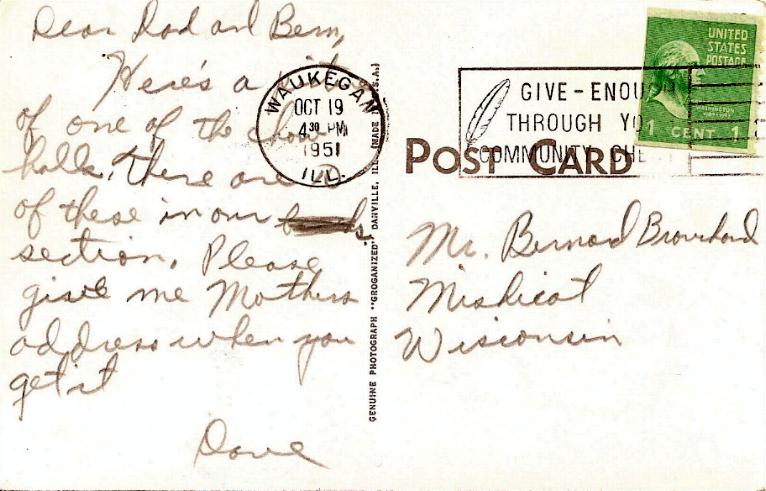 Dear Dad and Bern,
Here's a
of one of the chow
halls. There are
of these in our
section. Please
give me Mothers
address when you
get it
Dave
WAUKEGAN
OCT 19
4 30 PM
1951
ILL.
GENUINE PHOTOGRAPH "GROGANIZED" DANVILLE, ILL. (MADE U.S.A.)
GIVE-ENOU
THROUGH YO
COMMUNITY CHE
UNITED
STATES
POSTAGE
WASHINGTON
1 CENT 1
POST CARD
Mr. Bernard Brouchard
Mishicot
Wisconsin